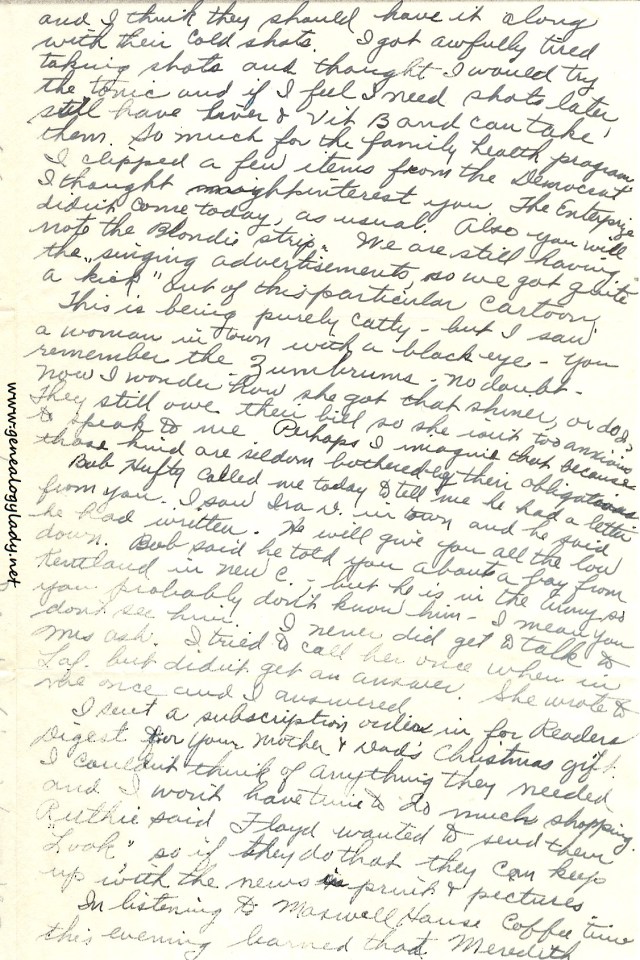 and I think they should have it along
with their cold shots. I got awfully tired
taking shots and thought I would try
the tonic and if I feel I need shots later
still have liver & Vit B and can take
them. So much for the family health program
I clipped a few items from the Democrat
I thought might interest you. The Enterprize
didn't come today, as usual. Also you will
note the Blondie strip. We are still having
the "singing advertisements, so we got quite
a kick" out of this particular cartoon.
This is being purely catty - but I saw
a woman in town with a black eye - you
remember the Zumbrums - no doubt -
now I wonder how she got that shiner, or do I?
They still owe their bill so she isn't too anxious
to speak to me Perhaps I imagine that because
those kind are seldom bothered by their obligations
Bob Hufty called me today to tell me he had a letter
from you. I saw Ira D. in town and he said
he had written. He will give you all the low
down. Bob said he told you about a boy from
Kentland in new C. - but he is in the army so
you probably don't know him - I mean you
don't see him. I never did get to talk to
Mrs Ash. I tried to call her once when in
Laf. but didn't get an answer. She wrote to
me once and I answered.
I sent a subscription order in for Readers
Digest for your Mother & Dad's Christmas gift.
I couldn't think of anything they needed
and I won't have time to do much shopping.
Ruthie said Floyd wanted to send them
"Look" so if they do that they can keep
up with the news in print & pictures
In listening to Maxwell House Coffee time
this evening learned that Meredith
www.genealogylady.net